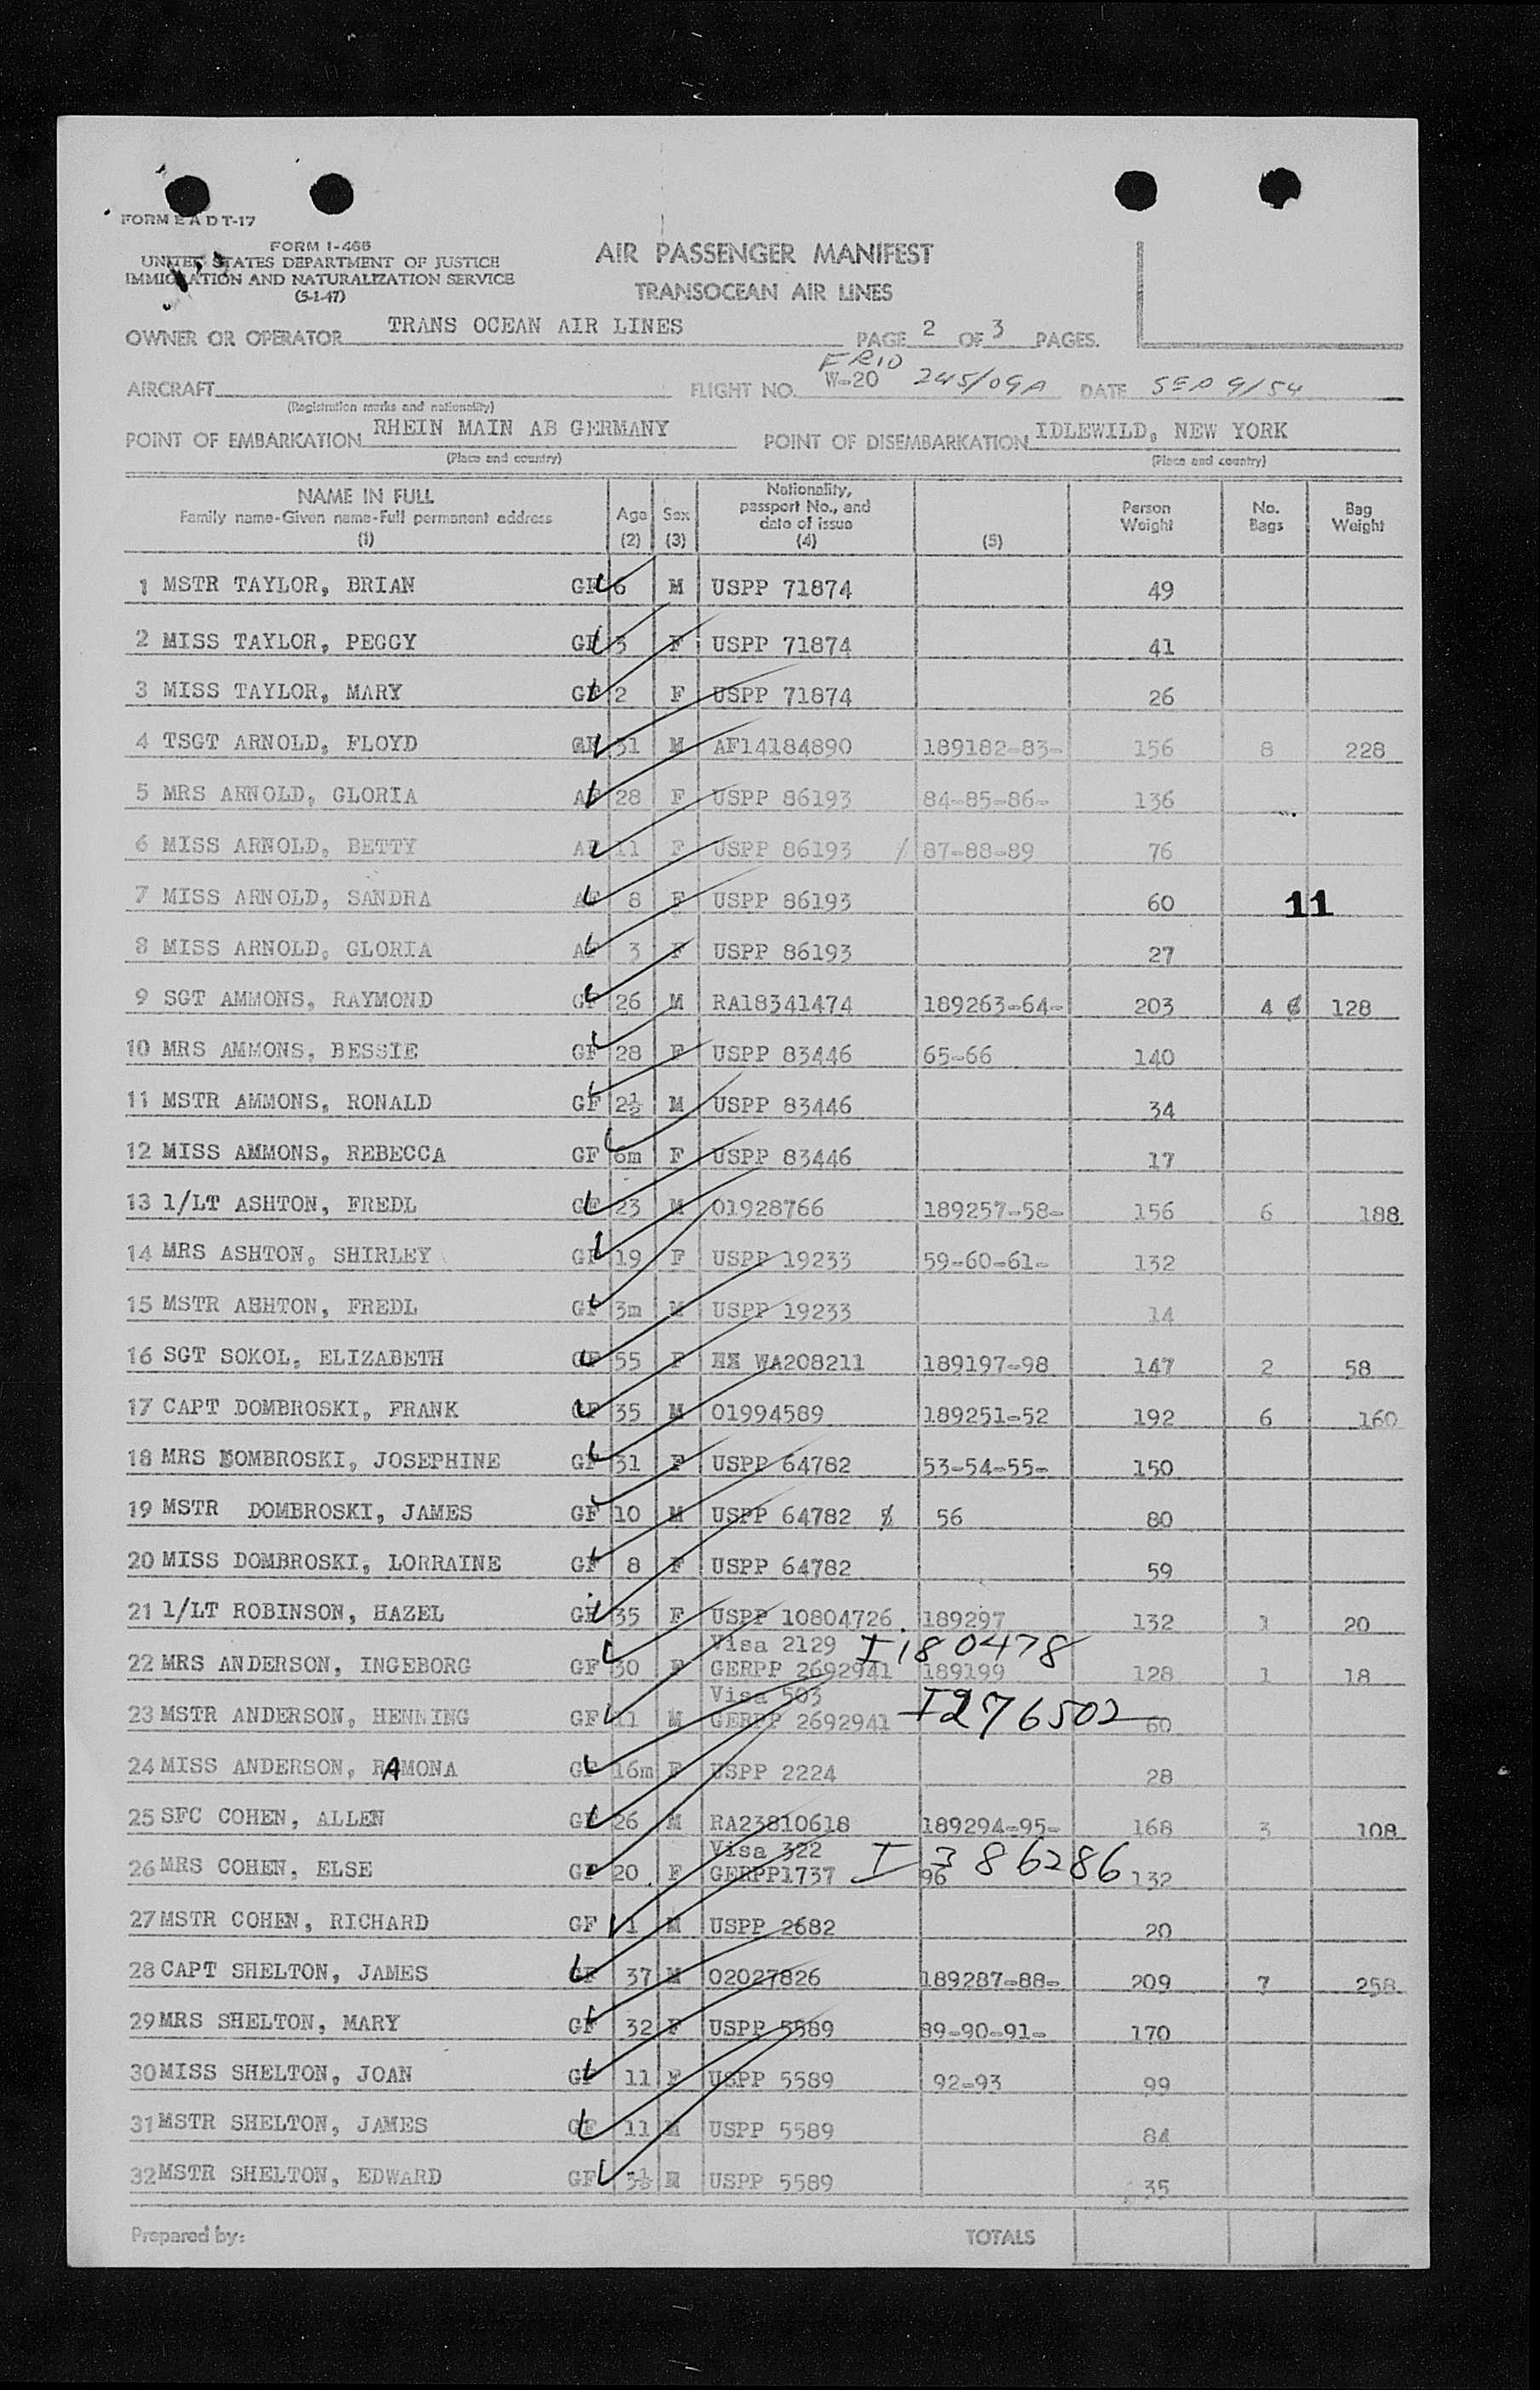 FORM E A D T-17
FORM I-466
UNITED STATES DEPARTMENT OF JUSTICE
IMMIGRATION AND NATURALIZATION SERVICE
(5-1-47)
AIR PASSENGER MANIFEST
TRANSOCEAN AIR LINES
OWNER OR OPERATOR TRANS OCEAN AIR LINES PAGE 2 OF 3 PAGES.
AIRCRAFT FLIGHT NO. W-20 245/09A DATE SEP 9/54
(Registration marks and nationality)
POINT OF EMBARKATION RHEIN MAIN AB GERMANY POINT OF DISEMBARKATION IDLEWILD, NEW YORK
(Place and country) (Place and country)
NAME IN FULL Family name-Given name-Full permanent address (1) Age (2) Sex (3) Nationality, passport No., and date of issue (4) (5) Person Weight No. Bags Bag Weight
1 MSTR TAYLOR, BRIAN GF 6 M USPP 71874 49
2 MISS TAYLOR, PEGGY GF 5 F USPP 71874 41
3 MISS TAYLOR, MARY GF 2 F USPP 71874 26
4 TSGT ARNOLD, FLOYD 31 M AF14184890 189182-83- 156 8 228
5 MRS ARNOLD, GLORIA AF 28 F USPP 86193 84-85-86- 136
6 MISS ARNOLD, BETTY AF 11 F USPP 86193 / 87-88-89 76
7 MISS ARNOLD, SANDRA AF 8 F USPP 86193 60 11
8 MISS ARNOLD, GLORIA AF 3 F USPP 86193 27
9 SGT AMMONS, RAYMOND GF 26 M RA18341474 189263-64- 203 4 6 128
10 MRS AMMONS, BESSIE GF 28 F USPP 83446 65-66 140
11 MSTR AMMONS, RONALD GF 2½ M USPP 83446 34
12 MISS AMMONS, REBECCA GF 6m F USPP 83446 17
13 1/LT ASHTON, FREDL GF 23 M 01928766 189257-58- 156 6 188
14 MRS ASHTON, SHIRLEY GF 19 F USPP 19233 59-60-61- 132
15 MSTR ASHTON, FREDL GF 3m M USPP 19233 14
16 SGT SOKOL, ELIZABETH GF 55 F WA208211 189197-98 147 2 58
17 CAPT DOMBROSKI, FRANK GF 35 M 01994589 189251-52 192 6 160
18 MRS DOMBROSKI, JOSEPHINE GF 31 F USPP 64782 53-54-55- 150
19 MSTR DOMBROSKI, JAMES GF 10 M USPP 64782 56 80
20 MISS DOMBROSKI, LORRAINE GF 8 F USPP 64782 59
21 1/LT ROBINSON, HAZEL GF 35 F USPP 10804726 189297 132 1 20
Visa 2129 I 180478
22 MRS ANDERSON, INGEBORG GF 30 F GERPP 2692941 189199 128 1 18
Visa 503
23 MSTR ANDERSON, HENNING GF 11 M GERPP 2692941 I276502 60
24 MISS ANDERSON, RAMONA GF 16m F USPP 2224 28
25 SFC COHEN, ALLEN GF 26 M RA23810618 189294-95- 168 3 108
Visa 322 I 386286
26 MRS COHEN, ELSE GF 20 F GERPP1737 96 132
27 MSTR COHEN, RICHARD GF 1 M USPP 2682 20
28 CAPT SHELTON, JAMES GF 37 M 02027826 189287-88- 209 7 258
29 MRS SHELTON, MARY GF 32 F USPP 5589 89-90-91- 170
30 MISS SHELTON, JOAN GF 11 F USPP 5589 92-93 99
31 MSTR SHELTON, JAMES GF 11 M USPP 5589 84
32 MSTR SHELTON, EDWARD GF 3½ M USPP 5589 35
Prepared by: TOTALS